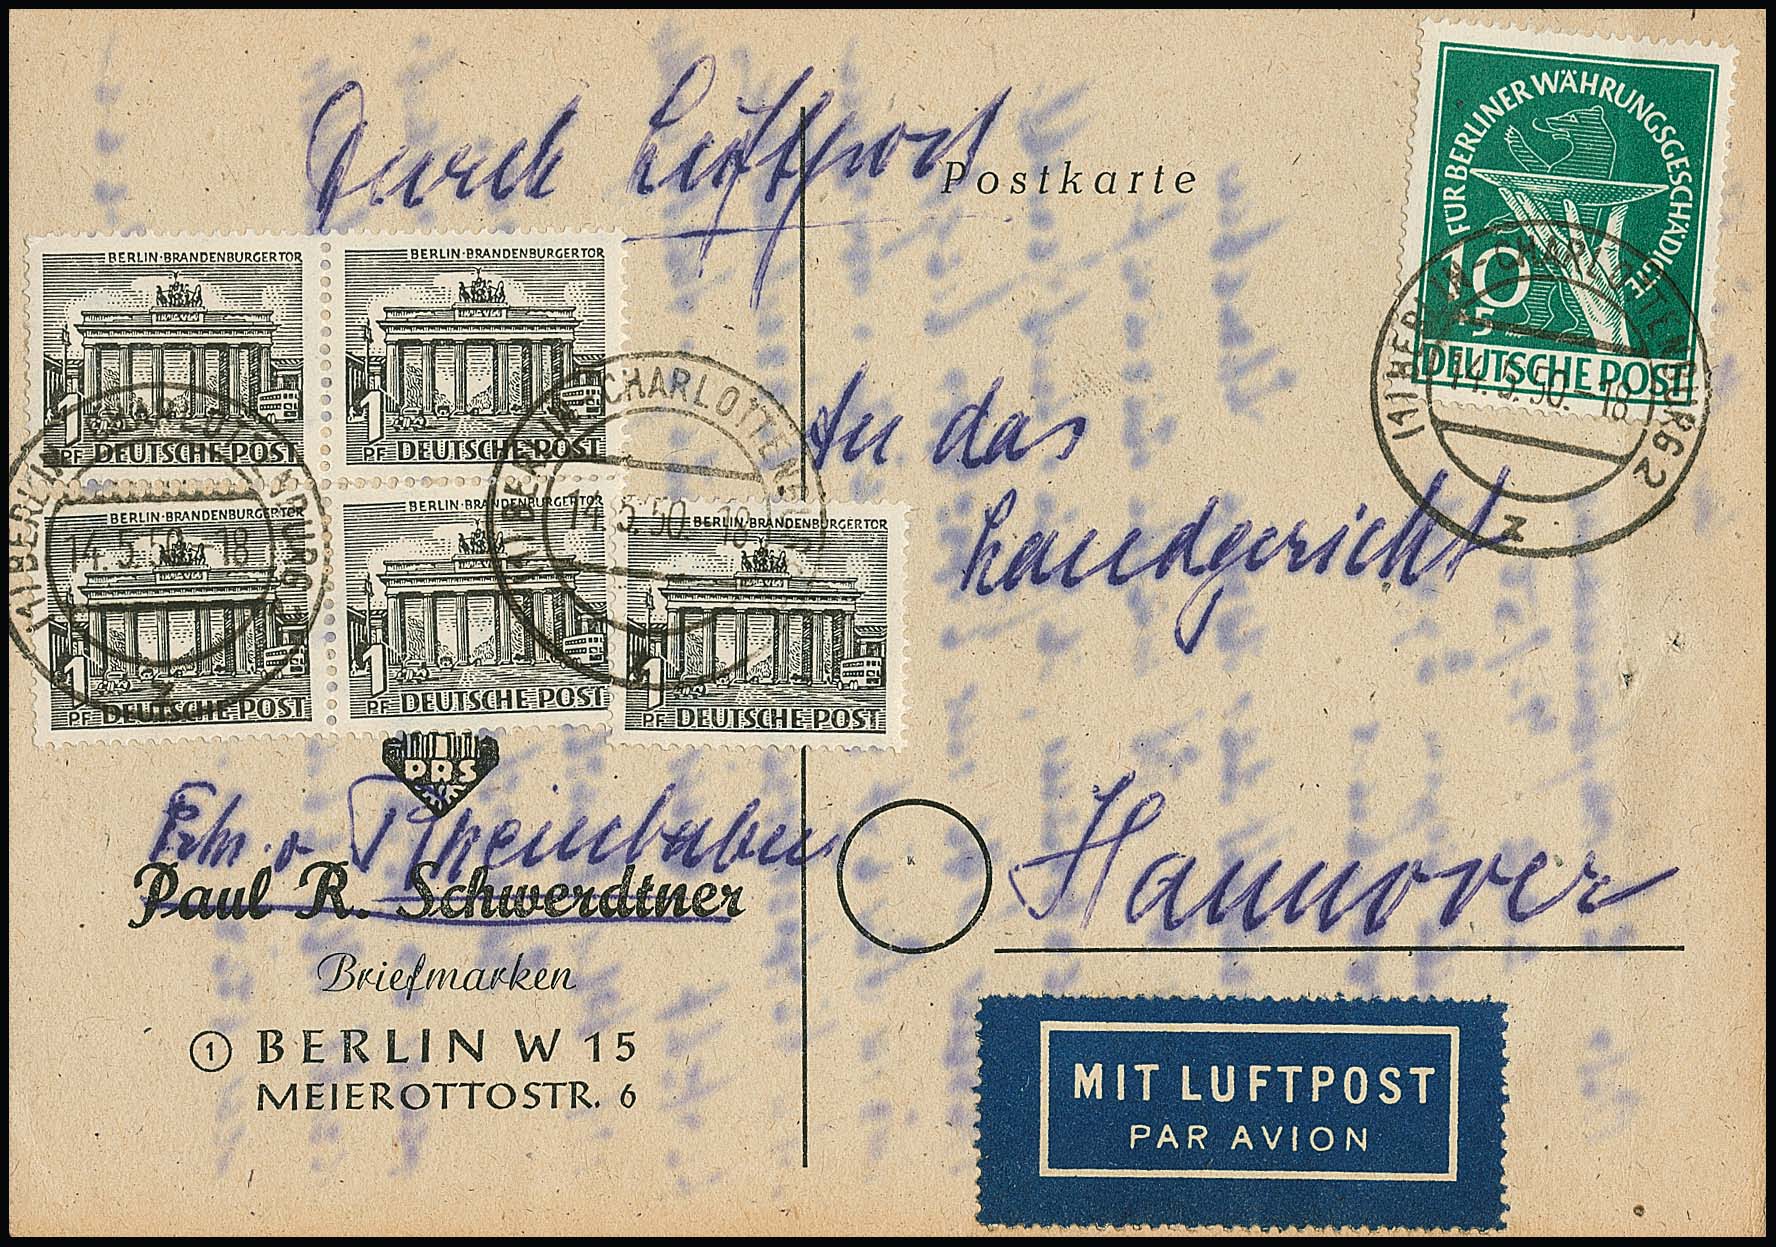 Durch Luftpost
Postkarte
FÜR BERLINER WÄHRUNGSGESCHÄDIGTE
10
5
DEUTSCHE POST
(1) BERLIN-CHARLOTTENBURG 2
14.5.50.-18
z
BERLIN·BRANDENBURGER TOR
1 PF DEUTSCHE POST
BERLIN·BRANDENBURGER TOR
1 PF DEUTSCHE POST
BERLIN·BRANDENBURGER TOR
1 PF DEUTSCHE POST
BERLIN·BRANDENBURGER TOR
1 PF DEUTSCHE POST
BERLIN·BRANDENBURGER TOR
1 PF DEUTSCHE POST
(1) BERLIN-CHARLOTTENBURG 2
14.5.50.-18
z
(1) BERLIN-CHARLOTTENBURG
14.5.50.-18
An das
Landgericht
Hannover
PRS
v. Rheinbaben
Paul R. Schwerdtner
Briefmarken
1 BERLIN W 15
MEIEROTTOSTR. 6
K
MIT LUFTPOST
PAR AVION